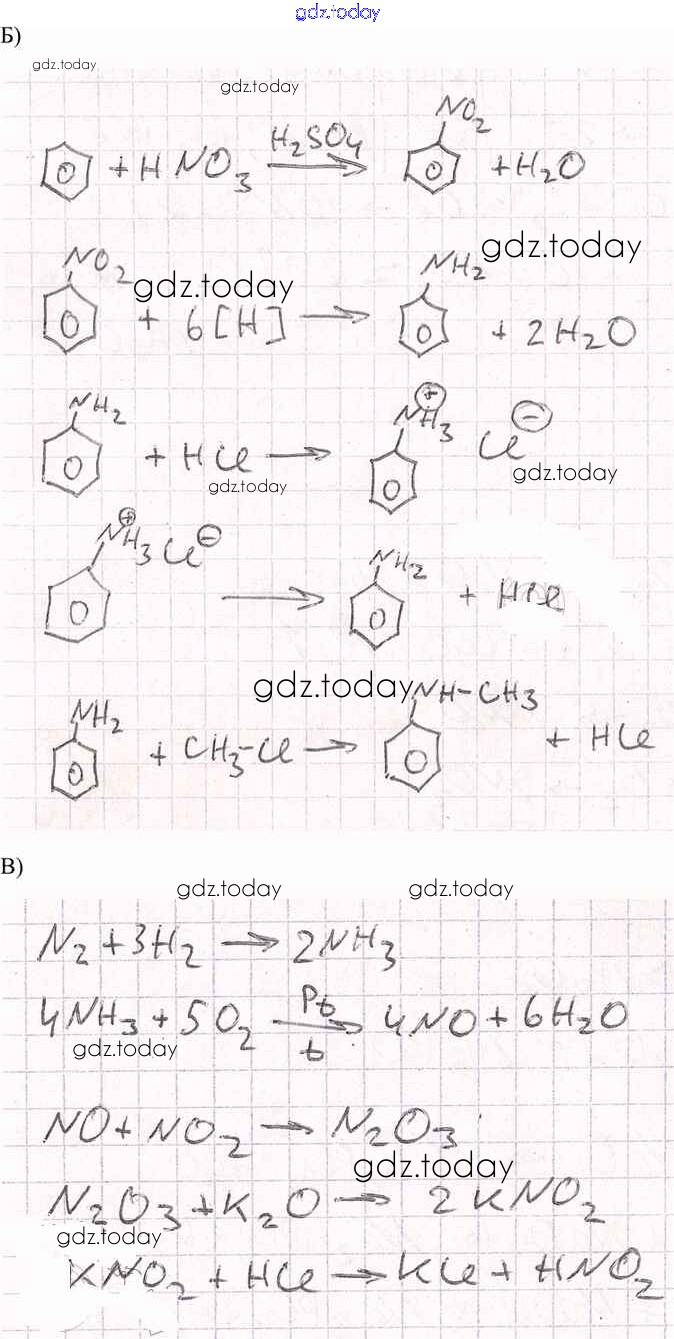 gdz.today
Б)
gdz.today
gdz.today
+ HNO3 H2SO4 → NO2 + H2O
NO2 gdz.today + 6[H] → NH2 gdz.today + 2H2O
NH2 + HCl → NH3 ⊕ Cl ⊖
gdz.today gdz.today
NH3 ⊕ Cl ⊖ → NH2 + HCl
gdz.today
NH2 + CH3-Cl → NH-CH3 + HCl
В)
gdz.today gdz.today
N2 + 3H2 → 2NH3
4NH3 + 5O2 Pt → t 4NO + 6H2O
gdz.today
NO + NO2 → N2O3
gdz.today
N2O3 + K2O → 2KNO2
gdz.today
KNO2 + HCl → KCl + HNO2